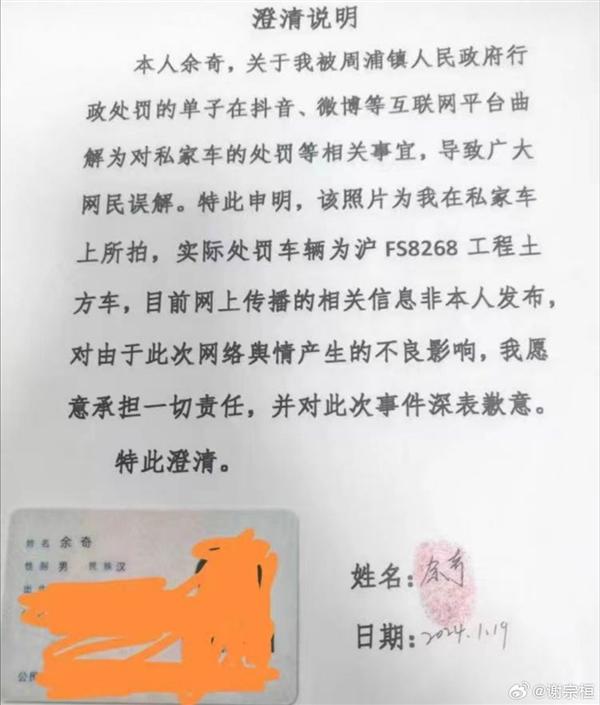 澄清说明
本人余奇，关于我被周浦镇人民政府行
政处罚的单子在抖音、微博等互联网平台曲
解为对私家车的处罚等相关事宜，导致广大
网民误解。特此申明，该照片为我在私家车
上所拍，实际处罚车辆为沪 FS8268 工程土
方车，目前网上传播的相关信息非本人发布，
对由于此次网络舆情产生的不良影响，我愿
意承担一切责任，并对此次事件深表歉意。
特此澄清。
姓名 余奇
性别 男 民族 汉
公民
姓名：余奇
日期：2024.1.19
@谢宗桓